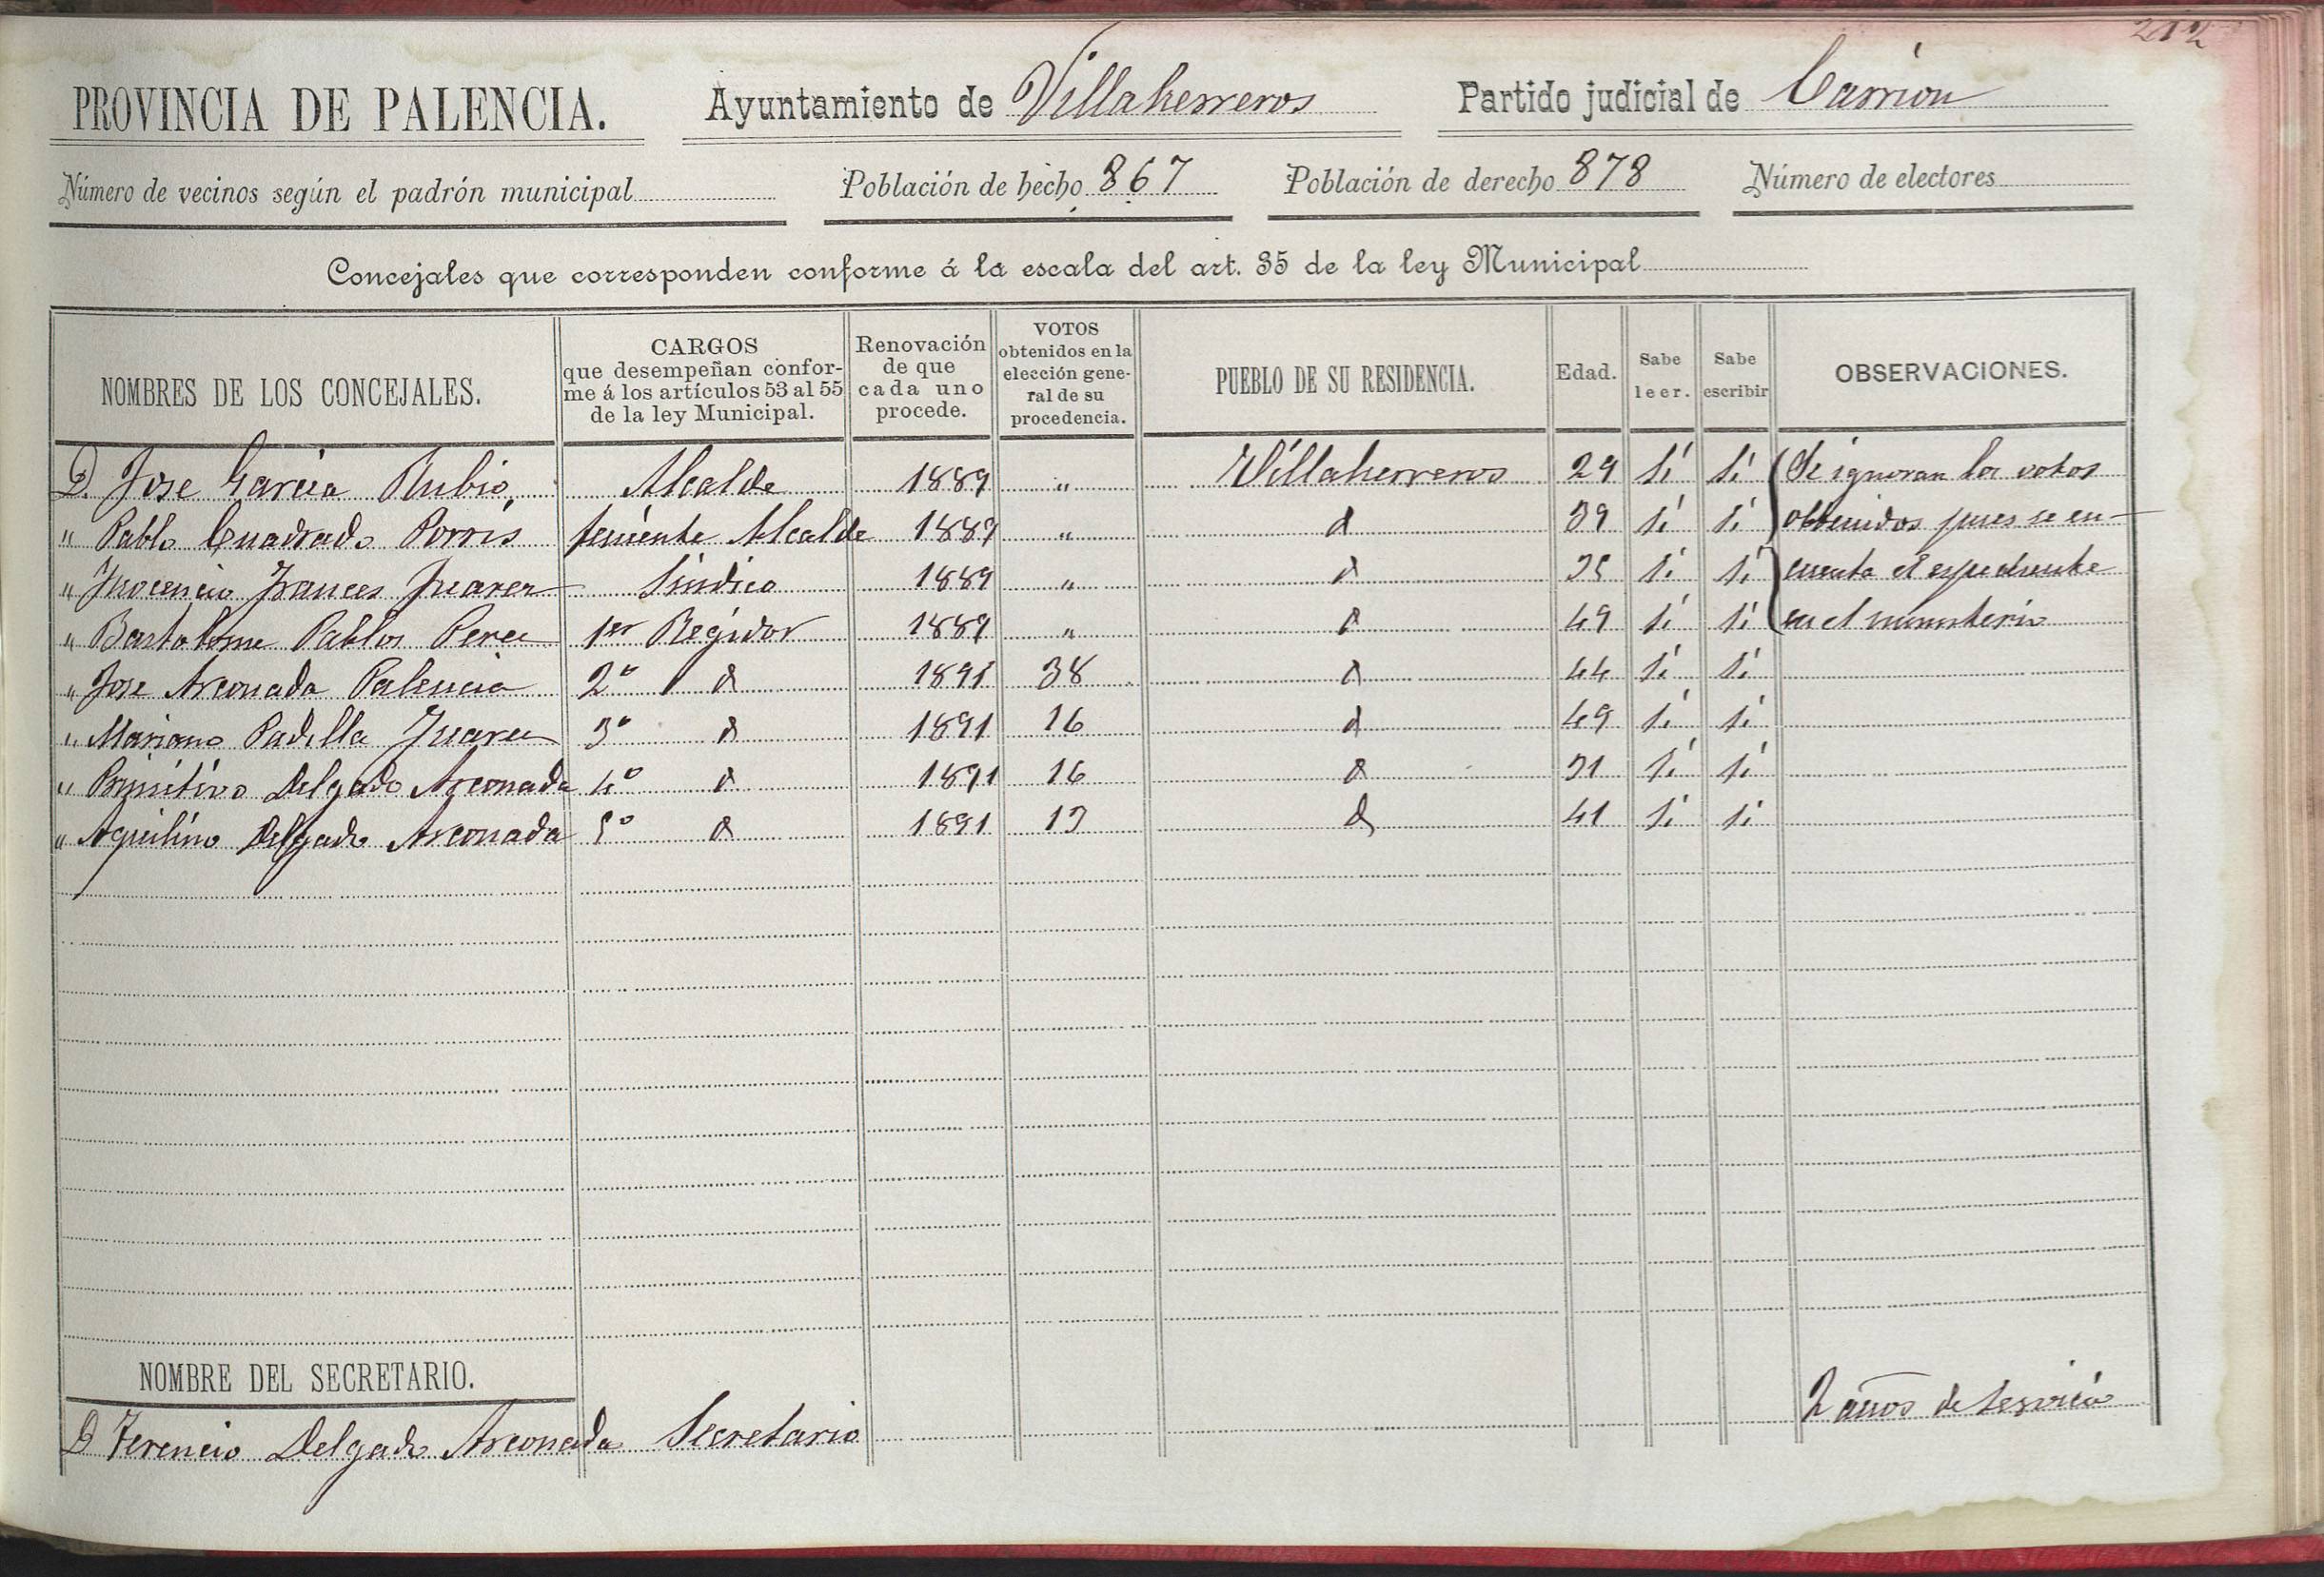 212
PROVINCIA DE PALENCIA. Ayuntamiento de Villaherreros Partido judicial de Carrion
Número de vecinos según el padrón municipal Población de hecho 867 Población de derecho 878 Número de electores
Concejales que corresponden conforme á la escala del art. 35 de la ley Municipal
NOMBRES DE LOS CONCEJALES.
CARGOS
que desempeñan confor-
me á los artículos 53 al 55
de la ley Municipal.
Renovación
de que
cada uno
procede.
VOTOS
obtenidos en la
elección gene-
ral de su
procedencia.
PUEBLO DE SU RESIDENCIA.
Edad.
Sabe
leer.
Sabe
escribir
OBSERVACIONES.
D. Jose Garcia Rubio Alcalde 1889 " Villaherreros 29 Si Si Se ignoran los votos
" Pablo Cuadrado Porris teniente Alcalde 1889 " d 39 Si Si obtenidos pues se en-
" Inocencio Frances Juarez Sindico 1889 " d 35 Si Si cuentra el expediente
" Bartolome Pablos Perez 1er Regidor 1889 " d 49 Si Si en el ministerio
" Jose Arconada Palencia 2º d 1891 38 d 44 Si Si
" Mariano Padilla Juarez 3º d 1891 16 d 49 Si Si
" Primitivo Delgado Arconada 4º d 1891 16 d 31 Si Si
" Aquilino Delgado Arconada 5º d 1891 13 d 41 Si Si
NOMBRE DEL SECRETARIO.
D Terencio Delgado Arconada Secretario 2 años de servicio